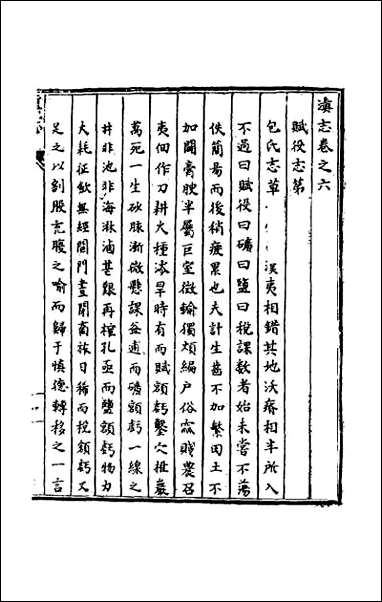 滇志卷之六
賦役志第
包氏志草　漢夷相錯其地沃瘠相半所入
不過曰賦役曰礦曰鹽曰稅課數者始未嘗不蕩
佚簡易而後稍疲累也夫計生齒不加繁田土不
加闢膏腴半屬巨室徵輸獨煩編戶俗窳賤農召
夷佃作刀耕火種澇旱時有而賦額虧鑿穴椎巖
萬死一生砂脉漸微懸課益逋而礦額虧一線之
井非池非海淋滷甚艱再榷孔亟而鹽額虧物力
大耗征斂無經關門晝閉商旅日稀而稅額虧又
足之以割股充腹之喻而歸于慎德轉移之一言